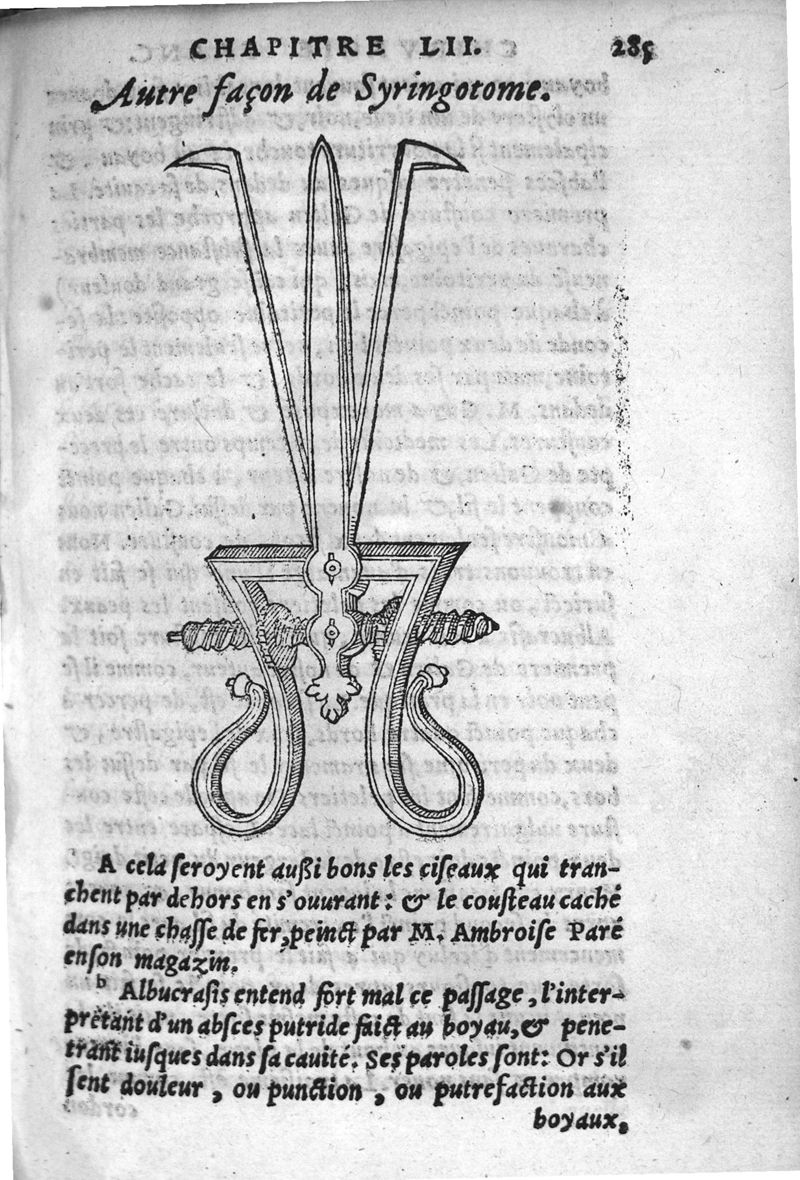 CHAPITRE LII. 285
Autre façon de Syringotome.
A cela seroyent außi bons les ciseaux qui tran-
chent par dehors en s'ouurant: & le cousteau caché
dans une chasse de fer, peinct par M. Ambroise Paré
enson magazin.
b Albucrasis entend fort mal ce passage, l'inter-
prëtant d'un absces putride faict au boyau, & pene-
trant iusques dans sa cauité. Ses paroles sont: Or s'il
sent douleur, ou punction, ou putrefaction aux
boyaux,